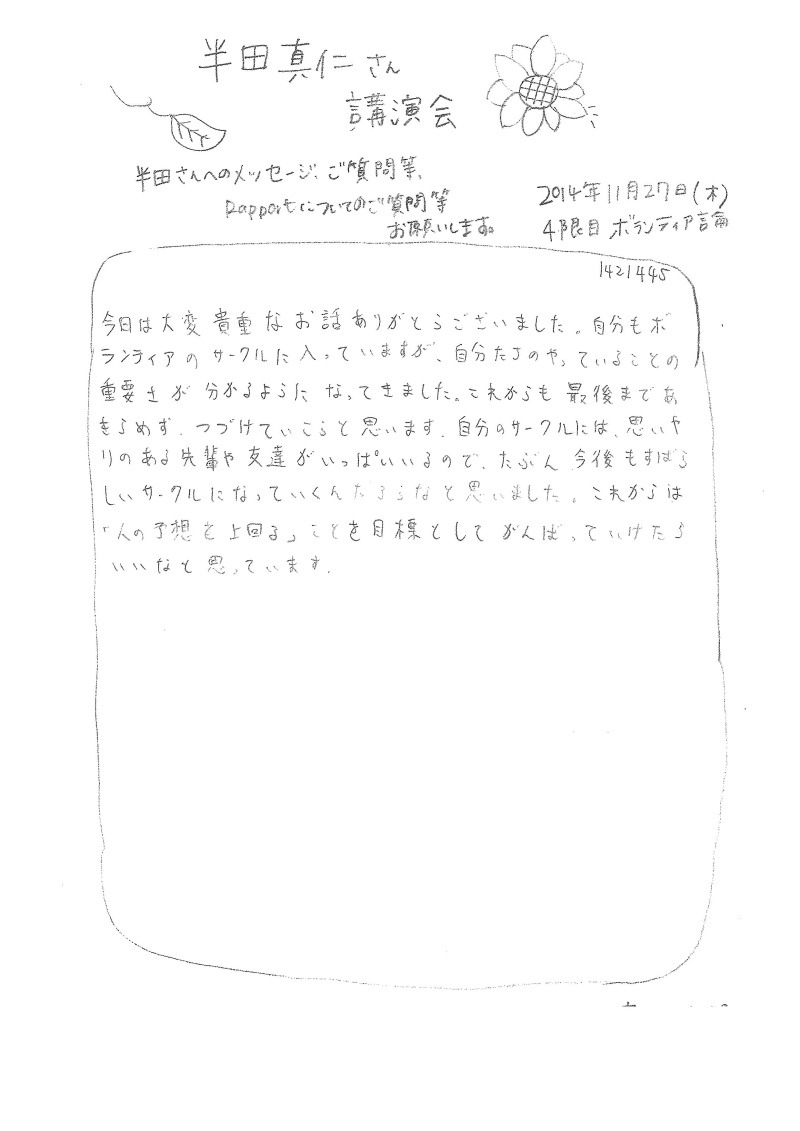 半田真仁さん
講演会
半田さんへのメッセージ、ご質問等、
Rapportについてのご質問等
お願いします。
2014年11月27日(木)
4限目 ボランティア言論
1421445
今日は大変貴重なお話ありがとうございました。自分もボ
ランティアのサークルに入っていますが、自分たちのやっていることの
重要さが分かるようになってきました。これからも最後まであ
きらめず、つづけていこうと思います。自分のサークルには、思いや
りのある先輩や友達がいっぱいいるので、たぶん今後もすばら
しいサークルになっていくんだろうなと思いました。これからは
「人の予想を上回る」ことを目標としてがんばっていけたら
いいなと思っています。